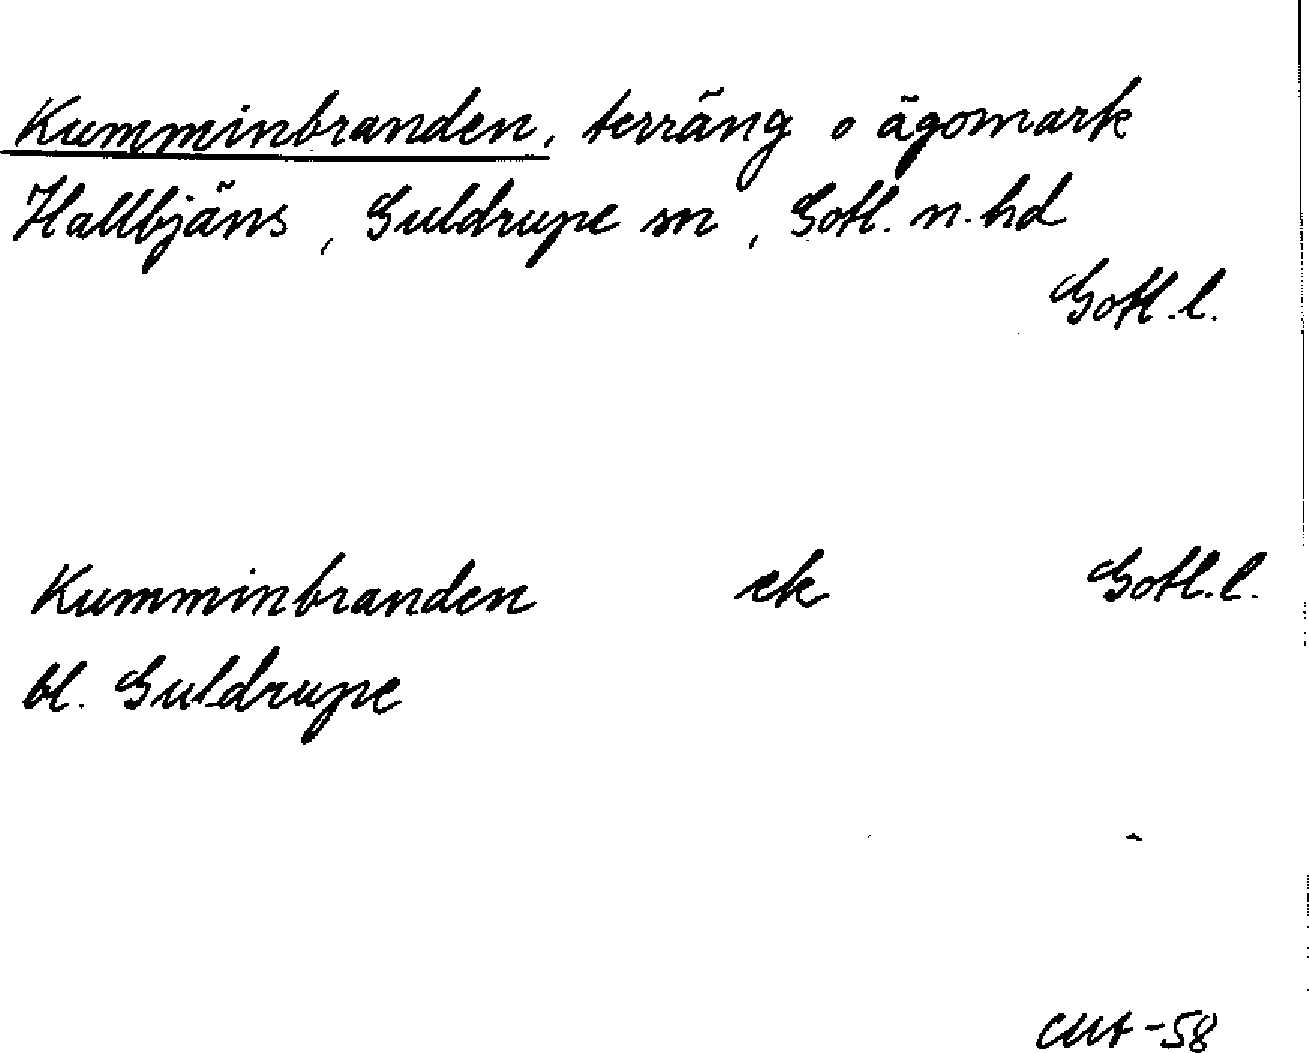 Kumminbranden, terräng o ägomark
Hallbjäns, Guldrupe sn, Gotl. n. hd
Gotl. l.
Kumminbranden ek Gotl. l.
bl. Guldrupe
-58